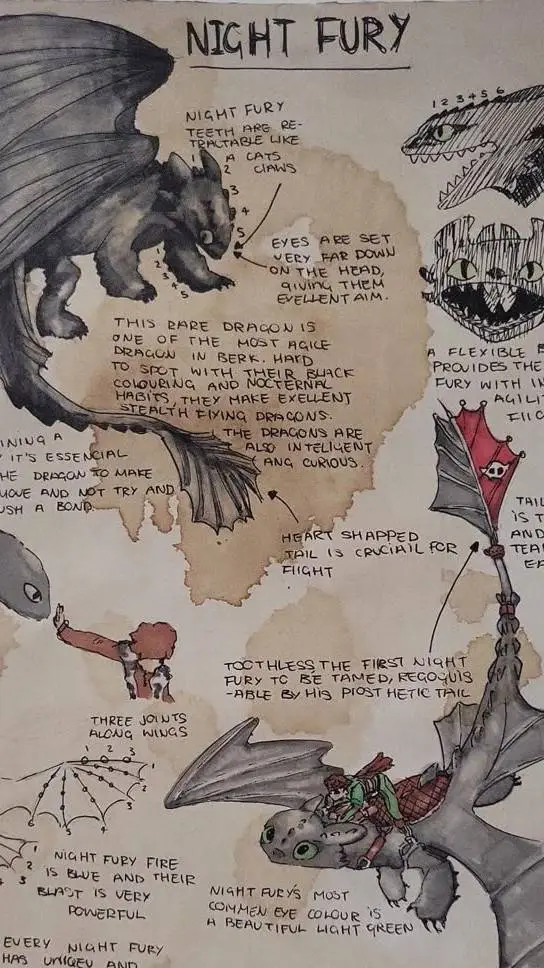 NIGHT FURY
NIGHT FURY
TEETH ARE RE-
TRACTABLE LIKE
A CATS
CLAWS
1
2
3
4
5
1 2 3 4 5 6
1
2
3
4
5
EYES ARE SET
VERY FAR DOWN
ON THE HEAD,
GIVING THEM
EXELLENT AIM.
THIS RARE DRAGON IS
ONE OF THE MOST AGILE
DRAGON IN BERK. HARD
TO SPOT WITH THEIR BLACK
COLOURING AND NOCTERNAL
HABITS, THEY MAKE EXELLENT
STEALTH FLYING DRAGONS.
THE DRAGONS ARE
ALSO INTELIGENT
ANG CURIOUS.
A FLEXIBLE B
PROVIDES THE
FURY WITH IN
AGILIT
FLIG
INING A
IT'S ESSENCIAL
HE DRAGON TO MAKE
MOVE AND NOT TRY AND
USH A BOND.
HEART SHAPPED
TAIL IS CRUCIAIL FOR
FLIGHT
TAIL
IS T
AND
TEA
EA
TOOTHLESS, THE FIRST NIGHT
FURY TO BE TAMED, REGOQUIS
-ABLE BY HIS PROST HETIC TAIL
THREE JOINTS
ALONG WINGS
1 2 3
1
2
3
4
5
6
1
2
3
NIGHT FURY FIRE
IS BLUE AND THEIR
BLAST IS VERY
POWERFUL
NIGHT FURY'S MOST
COMMEN EYE COLOUR IS
A BEAUTIFUL LIGHT GREEN
EVERY NIGHT FURY
HAS UNIQEU AND